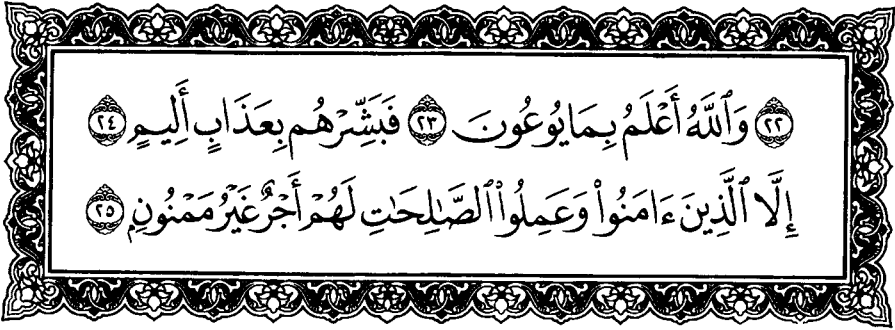 ٢٢ وَٱللَّهُ أَعْلَمُ بِمَا يُوعُونَ ٢٣ فَبَشِّرْهُم بِعَذَابٍ أَلِيمٍ ٢٤
إِلَّا ٱلَّذِينَ ءَامَنُوا۟ وَعَمِلُوا۟ ٱلصَّـٰلِحَـٰتِ لَهُمْ أَجْرٌ غَيْرُ مَمْنُونٍۭ ٢٥